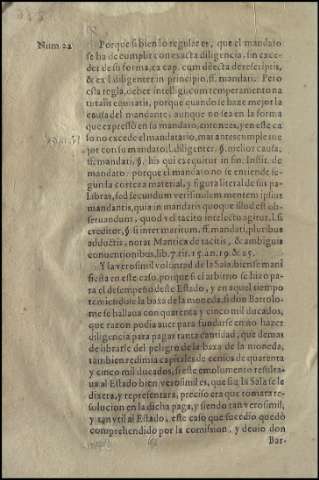 Num. 22
Porque si bien lo regular es, que el mandato
se ha de cumplir con exacta diligencia, sin exce-
der de su forma, ex cap. cum dilecta de rescriptis,
& ex l. diligenter in principio, ff. mandati. Pero
esta regla, deber intelligi, cum temperamento na
turalis equitatis, porque quando se haze mejor la
causa del mandante, aunque no sea en la forma
que expressó en su mandato, entonces, y en este ca
so no excede el mandatario, mar antes cumple me
jor con su mandato, l. diligenter. §. melior causa,
ff. mandati, §. his qui exequitur in fin. Instit. de
mandato. porque el mandato no se entiende se-
gun la corteza material, y figura literal de sus pa-
labras, sed secundum verissimilem mentem ipsius
mandantis, quia in mandatis quoque illud est ob-
seruandum, quod vel tacito intellecto agitur, l. si
creditor, §. si inter meritum, ff. mandati, pluribus
adductis, notat Mantica de tacitis, & ambiguis
conuentionibus, lib. 7. tit. 15. an. 19. & 25.
Y la verosimil voluntad de la Sala, bien se mani
fiesta en este caso, porque si el arbitrio se hizo pa-
ra el desempeño deste Estado, y en aquel tiempo
temiendose la baxa de la moneda, si don Bartolo-
me se hallaua con quarenta y cinco mil ducados,
que razon podia auer para fundarse en no hazer
diligencia para pagar tanta cantidad, que demas
de librarse del peligro de la baxa de la moneda,
tambien redimia capitales de censos de quarenta
y cinco mil ducados, si este emolumento resulta-
ua al Estado bien verosimil es, que si a la Sala se le
dixera, y representara, preciso era que tomara re-
solucion en la dicha paga, y siendo tan verosimil,
y tan vtil al Estado, este caso que sucedio quedò
comprehendido por la comission, y deuio don
Bar-